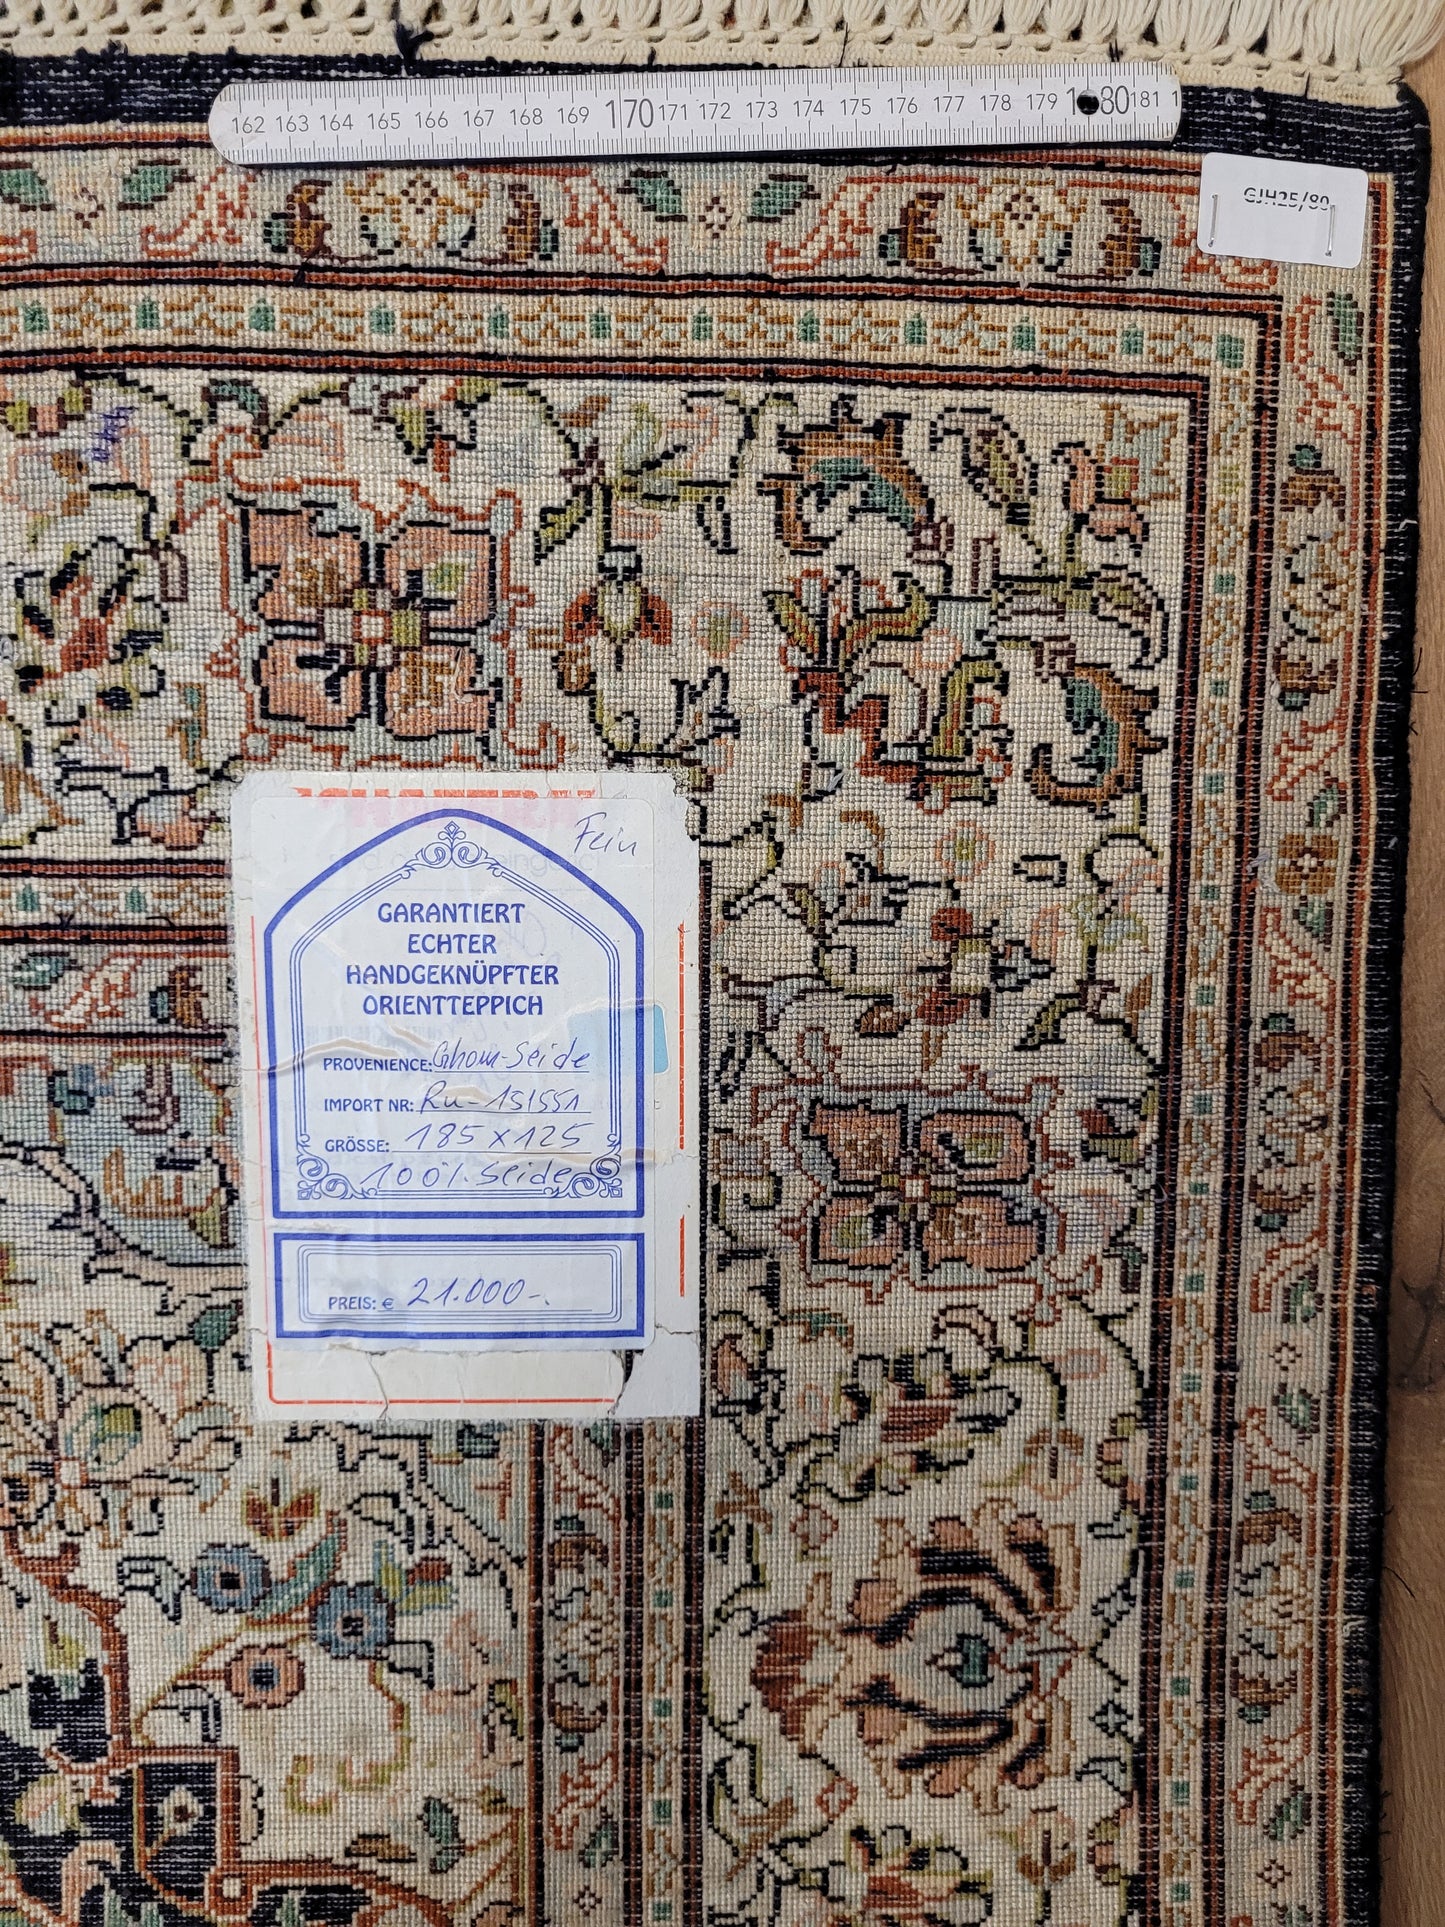 162 163 164 165 166 167 168 169 170 171 172 173 174 175 176 177 178 179 180 181
GJH25/80
Fein
GARANTIERT
ECHTER
HANDGEKNÜPFTER
ORIENTTEPPICH
PROVENIENCE: Ghom-Seide
IMPORT NR: Ru-151551
GRÖSSE: 185 x 125
100%. Seide
PREIS: € 21.000-.